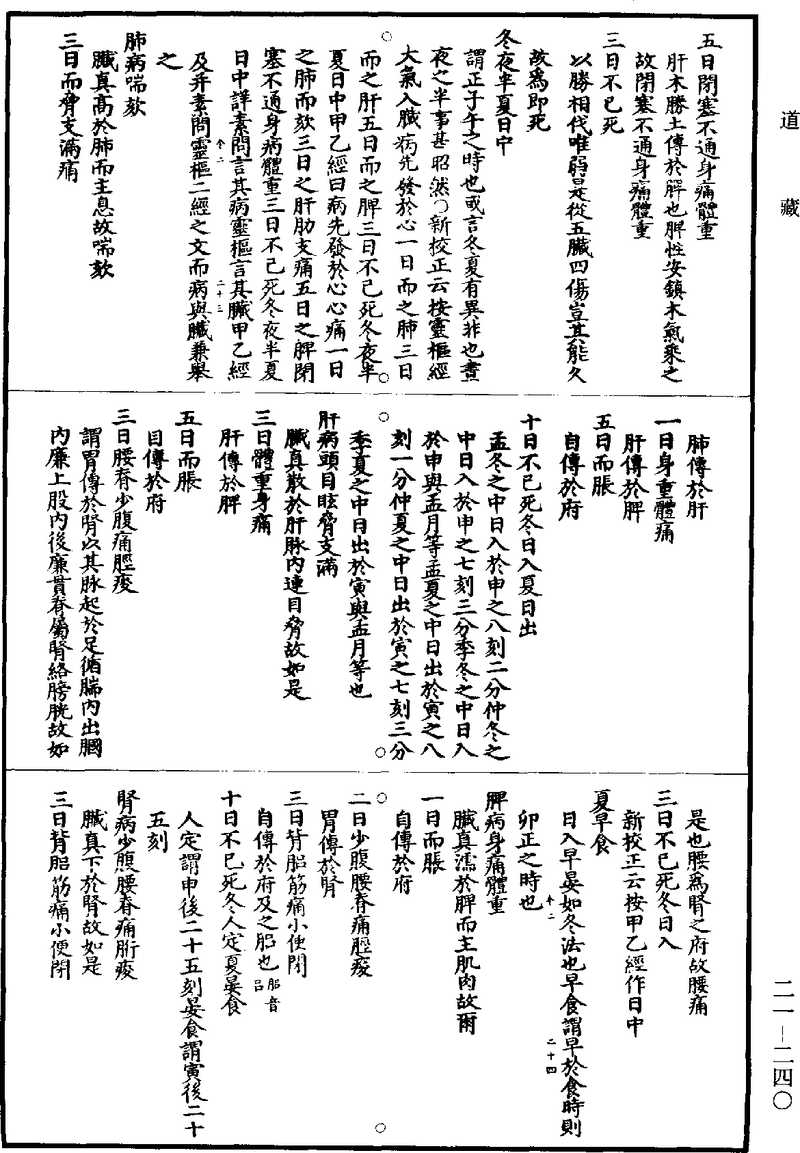 道藏
五日閉塞不通身痛體重
肝木勝土傳於脾也脾性安鎮木氣乘之
故閉塞不通身痛體重
三日不已死
以勝相伐唯弱是從五臟四傷豈其能久
故為即死
冬夜半夏日中
謂正子午之時也或言冬夏有異非也晝
夜之半事甚昭然○新校正云按靈樞經
大氣入臟病先發於心一日而之肺三日
而之肝五日而之脾三日不已死冬夜半
夏日中甲乙經曰病先發於心心痛一日
之肺而欬三日之肝肋支痛五日之脾閉
塞不通身病體重三日不已死冬夜半夏
日中詳素問言其病靈樞言其臟甲乙經
及并素問靈樞二經之文而病與臟兼舉
之
肺病喘欬
臟真高於肺而主息故喘欬
三日而脅支滿痛
肺傳於肝
一日身重體痛
肝傳於脾
五日而脹
自傳於府
十日不已死冬日入夏日出
孟冬之中日入於申之八刻二分仲冬之
中日入於申之七刻三分季冬之中日入
於申與孟月等孟夏之中日出於寅之八
刻一分仲夏之中日出於寅之七刻三分
季夏之中日出於寅與孟月等也
肝病頭目眩脅支滿
臟真散於肝脉內連目脅故如是
三日體重身痛
肝傳於脾
五日而脹
自傳於府
三日腰脊少腹痛脛痠
謂胃傳於腎以其脉起於足循腨內出膕
內廉上股內後廉貫脊屬腎絡膀胱故如
是也腰為腎之府故腰痛
三日不已死冬日入
新校正云按甲乙經作日中
夏早食
日入早晏如冬法也早食謂早於食時則
卯正之時也
脾病身痛體重
臟真濡於脾而主肌肉故爾
一日而脹
自傳於府
二日少腹腰脊痛脛痠
胃傳於腎
三日背䏚筋痛小便閉
自傳於府及之䏚也䏚音呂
十日不已死冬人定夏晏食
人定謂申後二十五刻晏食謂寅後二十
五刻
腎病少腹腰脊痛胻痠
臟真下於腎故如是
三日背䏚筋痛小便閉
二一–二四〇